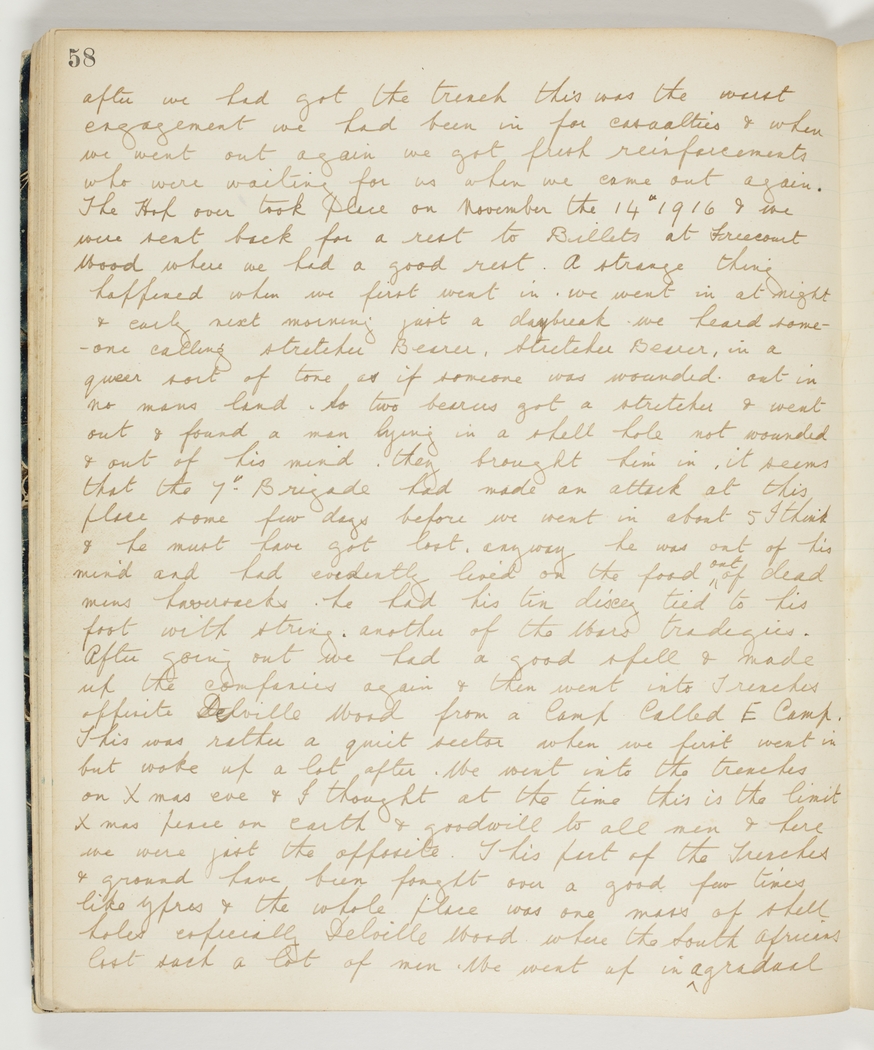 58
after we had got the trench this was the worst
engagement we had been in for casualties & when
we went out again we got fresh reinforcements
who were waiting for us when we came out again.
The Hop over took place on November the 14" 1916 & we
were sent back for a rest to Billets at Friecourt
Wood where we had a good rest. A strange thing
happened when we first went in. we went in at night
& early next morning just a daybreak we heard some-
-one calling stretcher Bearer, Stretcher Bearer, in a
queer sort of tone as if someone was wounded. out in
no mans land. So two bearers got a stretcher & went
out & found a man lying in a shell hole not wounded
& out of his mind. they brought him in, it seems
that the 7" Brigade had made an attack at this
place some few days before we went in about 5 I think
& he must have got lost. anyway he was out of his
mind and had evadently lived on the food out of dead
mens haversacks. he had his tin discey tied to his
foot with string. another of the Wars tradegies.
After going out we had a good spell & made
up the companies again & then went into Trenches
oppisite Delville Wood from a Camp Called E Camp.
This was rather a quiet sector when we first went in
but woke up a lot after. We went into the trenches
on X mas eve & I thought at the time this is the limit
X mas peace on earth & goodwill to all men & here
we were just the oppisite. This part of the Trenches
& ground have been fought over a good few times
like Ypres & the whole place was one mass of shell-
holes especially Delville Wood where the South Africans
lost such a lot of men. We went up in a gradual